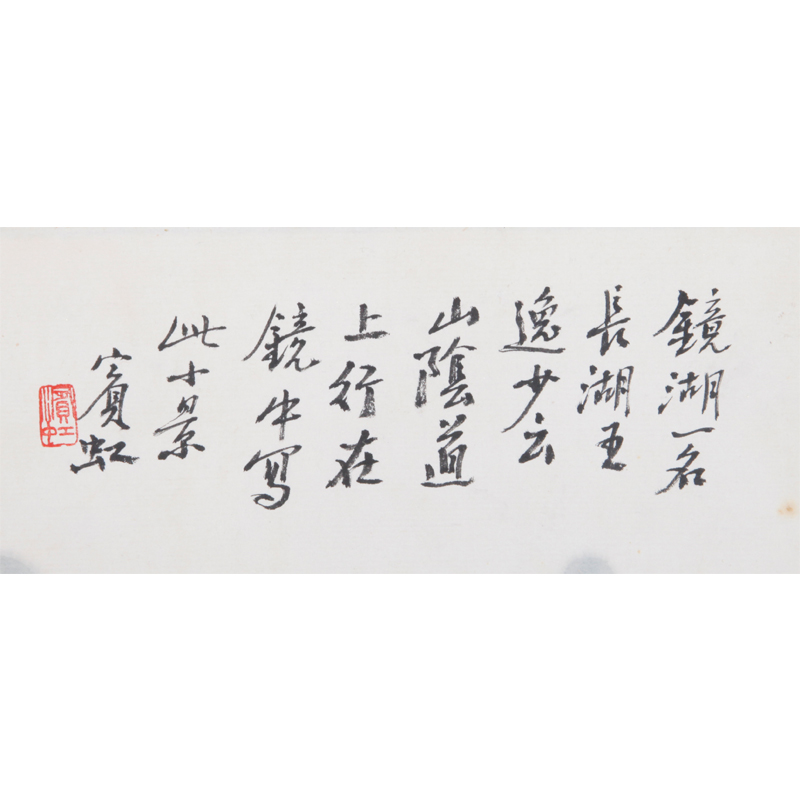 鏡湖一名
長湖王
逸少云
山陰道
上行在
鏡中寫
此小景
賓虹
濱虹